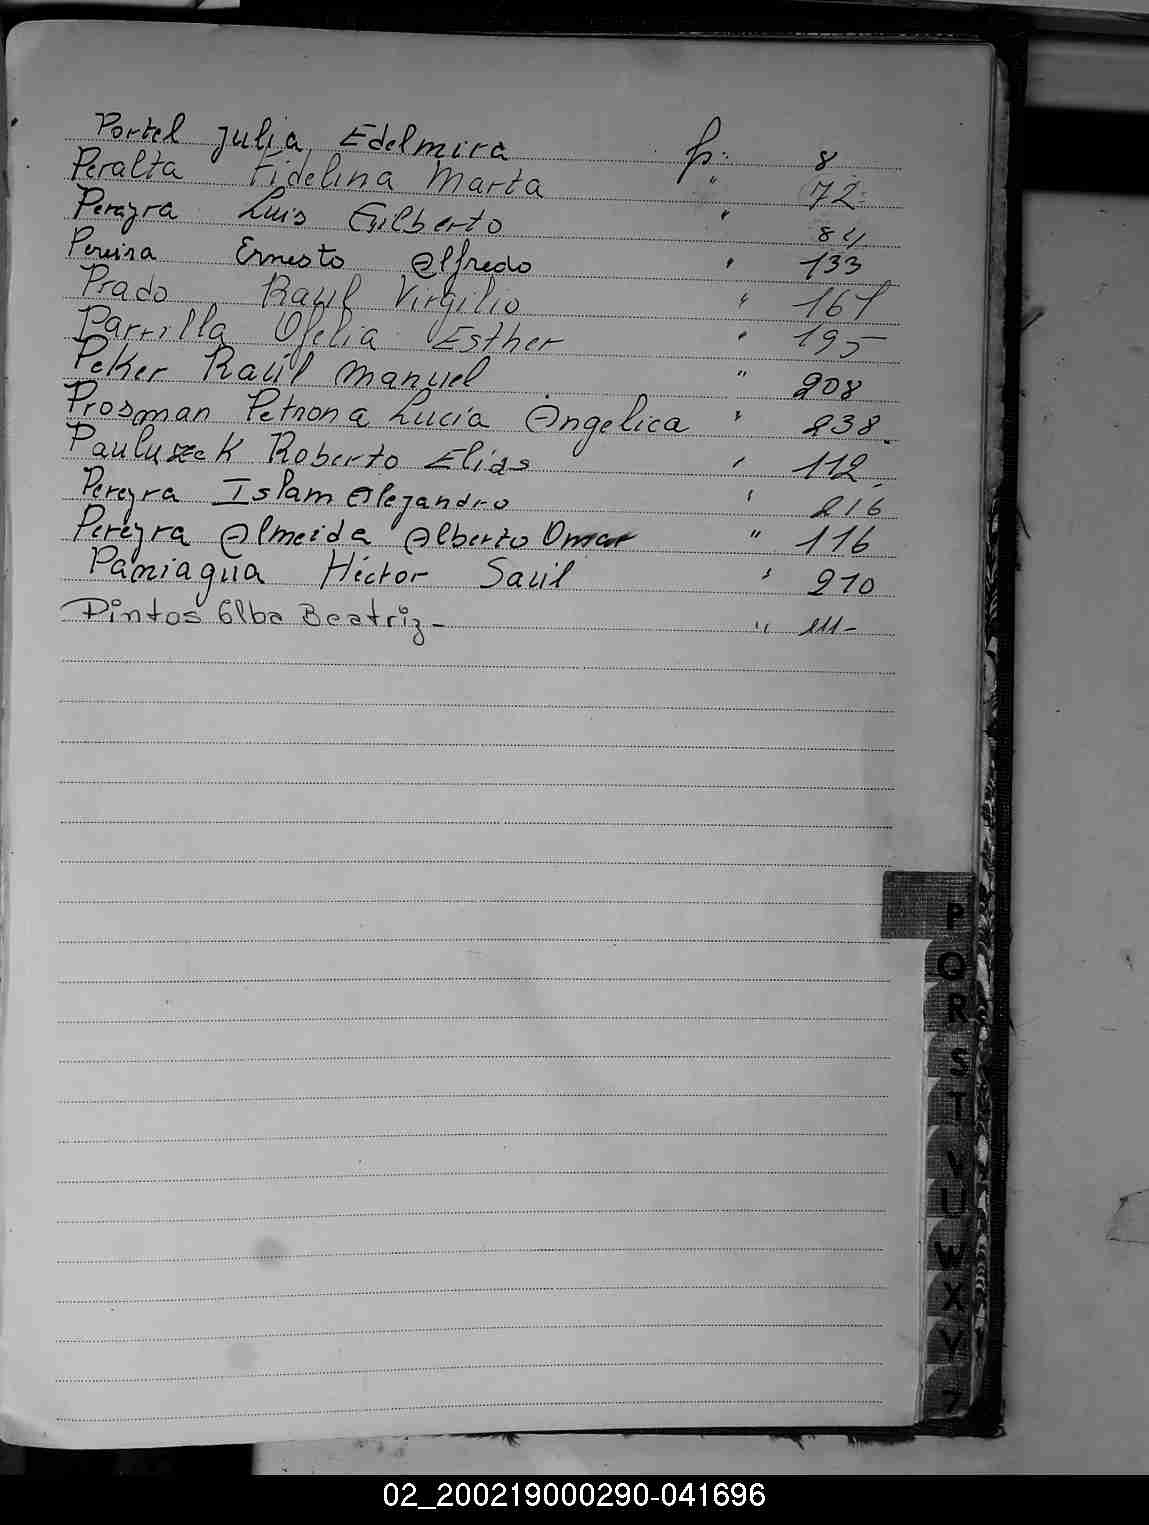 Portel Julia, Edelmira f: 8
Peralta Fidelina Marta " 72
Pereyra Luis Gilberto " 84
Pereira Ernesto Alfredo " 133
Prado Raúl Virgilio " 161
Parrilla Ofelia Esther " 195
Peker Raúl Manuel " 208
Prosman Petrona Lucía Angelica " 238.
Pauluzek Roberto Elias " 112
Pereyra Islam Alejandro " 216
Pereyra Almeida Alberto Omar " 116
Paniagua Héctor Saúl " 210
Pintos Elba Beatriz - "
P
Q
R
S
T
V
U
W
X
Y
02_200219000290-041696